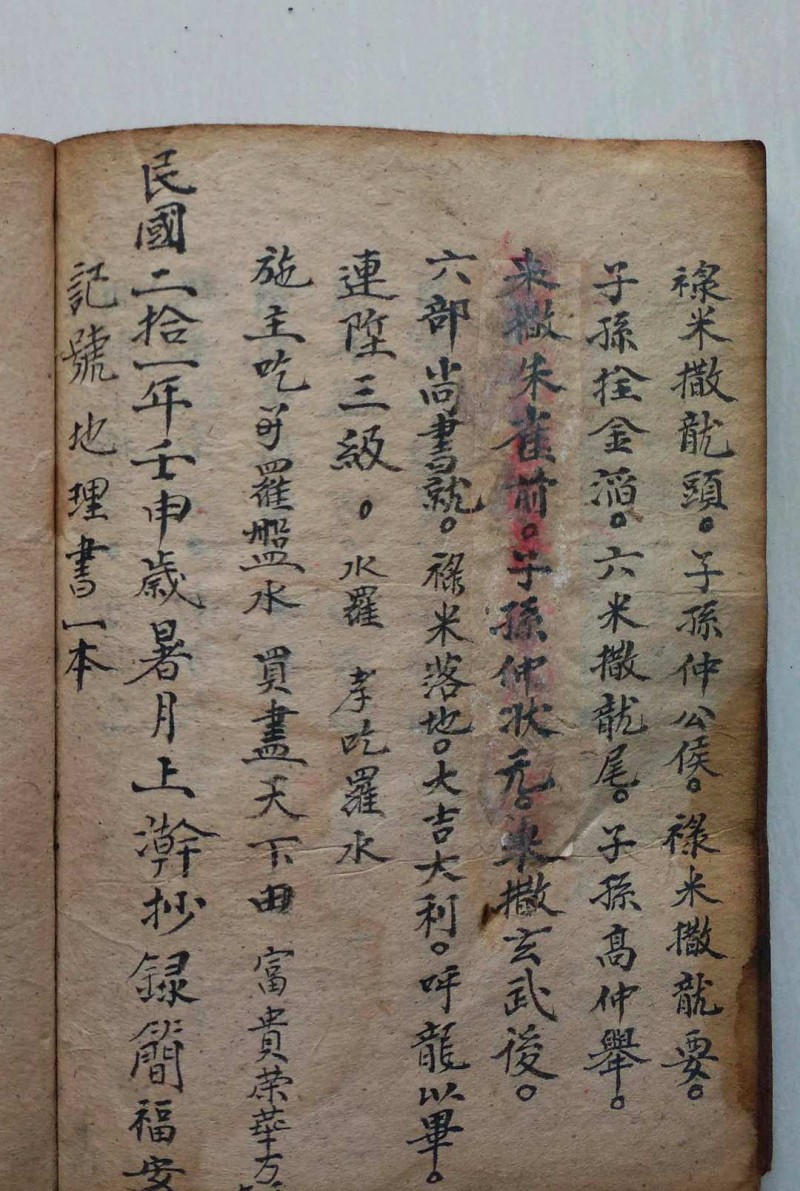 祿米撒龍頭。子孫仲公侯。祿米撒龍要。
子孫拴金滔。六米撒龍尾。子孫高仲舉。
来撒朱雀前。子孫仲状元。米撒玄武後。
六部尚書就。祿米落地。大吉大利。呼龍以畢。
連陞三級。水羅 孝吃羅水
施主吃羅盤水 買盡天下田 富貴荣華万
民國二拾一年壬申歲暑月上澣抄録簡福安
記號地理書一本